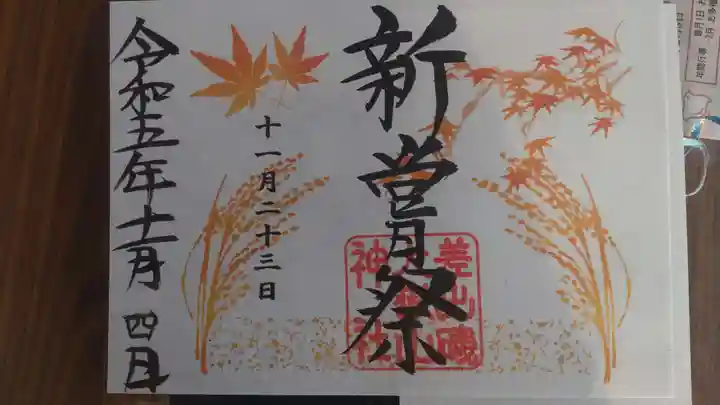 新嘗祭
十一月二十三日
令和五年十一月四日
差出磯
神社